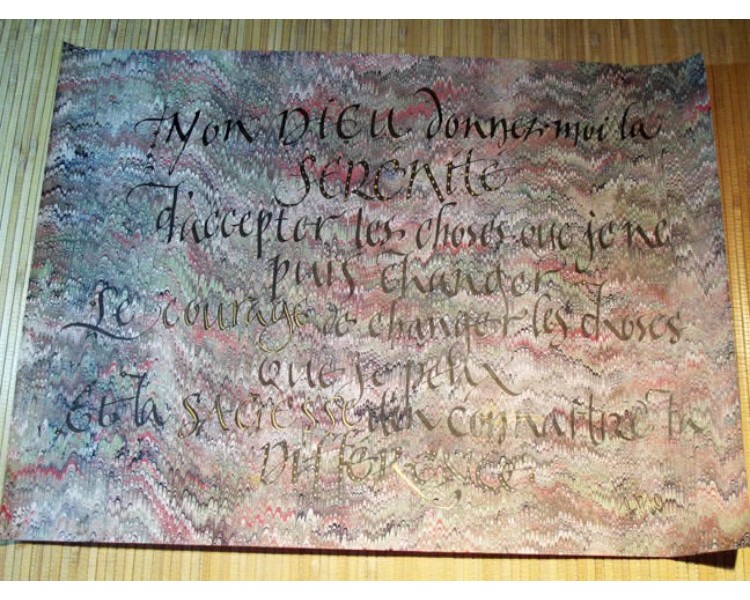 Mon DIEU donnez moi la
SERENITE
d'accepter les choses que je ne
puis changer
Le courage de changer les choses
que je peux
Et la SAGESSE d'en connaître la
DIFFérence